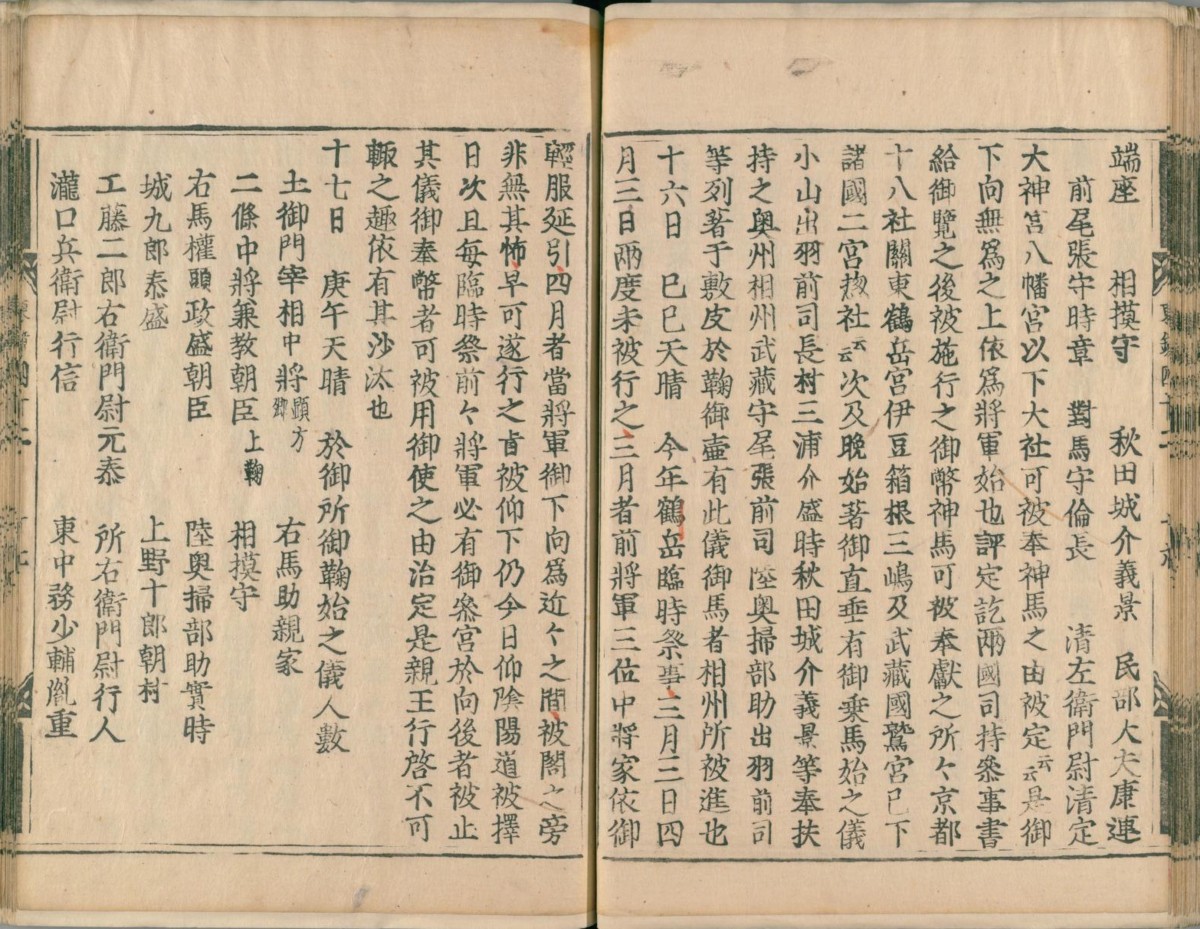 端座　相摸守　秋田城介義景　民部大夫康連
前尾張守時章　對馬守倫長　清左衛門尉清定
大神宮八幡宮以下大社可被奉神馬之由被定云云是御
下向無爲之上依爲將軍始也評定訖兩國司持參事書
給御覽之後被施行之御幣神馬可被奉獻之所々京都
十八社關東鶴岳宮伊豆箱根三嶋及武藏國鷲宮已下
諸國二宮惣社云云次及晩始著御直垂有御乗馬始之儀
小山出羽前司長村三浦介盛時秋田城介義景等奉扶
持之奥州相州武藏守尾張前司陸奥掃部助出羽前司
等列著于敷皮於鞠御壷有此儀御馬者相州所被進也
十六日　己巳天晴　今年鶴岳臨時祭事三月三日四
月三日兩度未被行之三月者前將軍三位中將家依御
輕服延引四月者當將軍御下向爲近々之間被閣之旁
非無其怖早可遂行之旨被仰下仍今日仰陰陽道被擇
日次且每臨時祭前々將軍必有御參宮於向後者被止
其儀御奉幣者可被用御使之由治定是親王行啓不可
輙之趣依有其沙汰也
十七日　庚午天晴　於御所御鞠始之儀人數
土御門宰相中將顕方卿　右馬助親家
二條中將兼教朝臣上鞠　相摸守
右馬權頭政盛朝臣　陸奥掃部助實時
城九郎泰盛　上野十郎朝村
工藤二郎右衛門尉元泰　所右衛門尉行人
瀧口兵衛尉行信　東中務少輔胤重